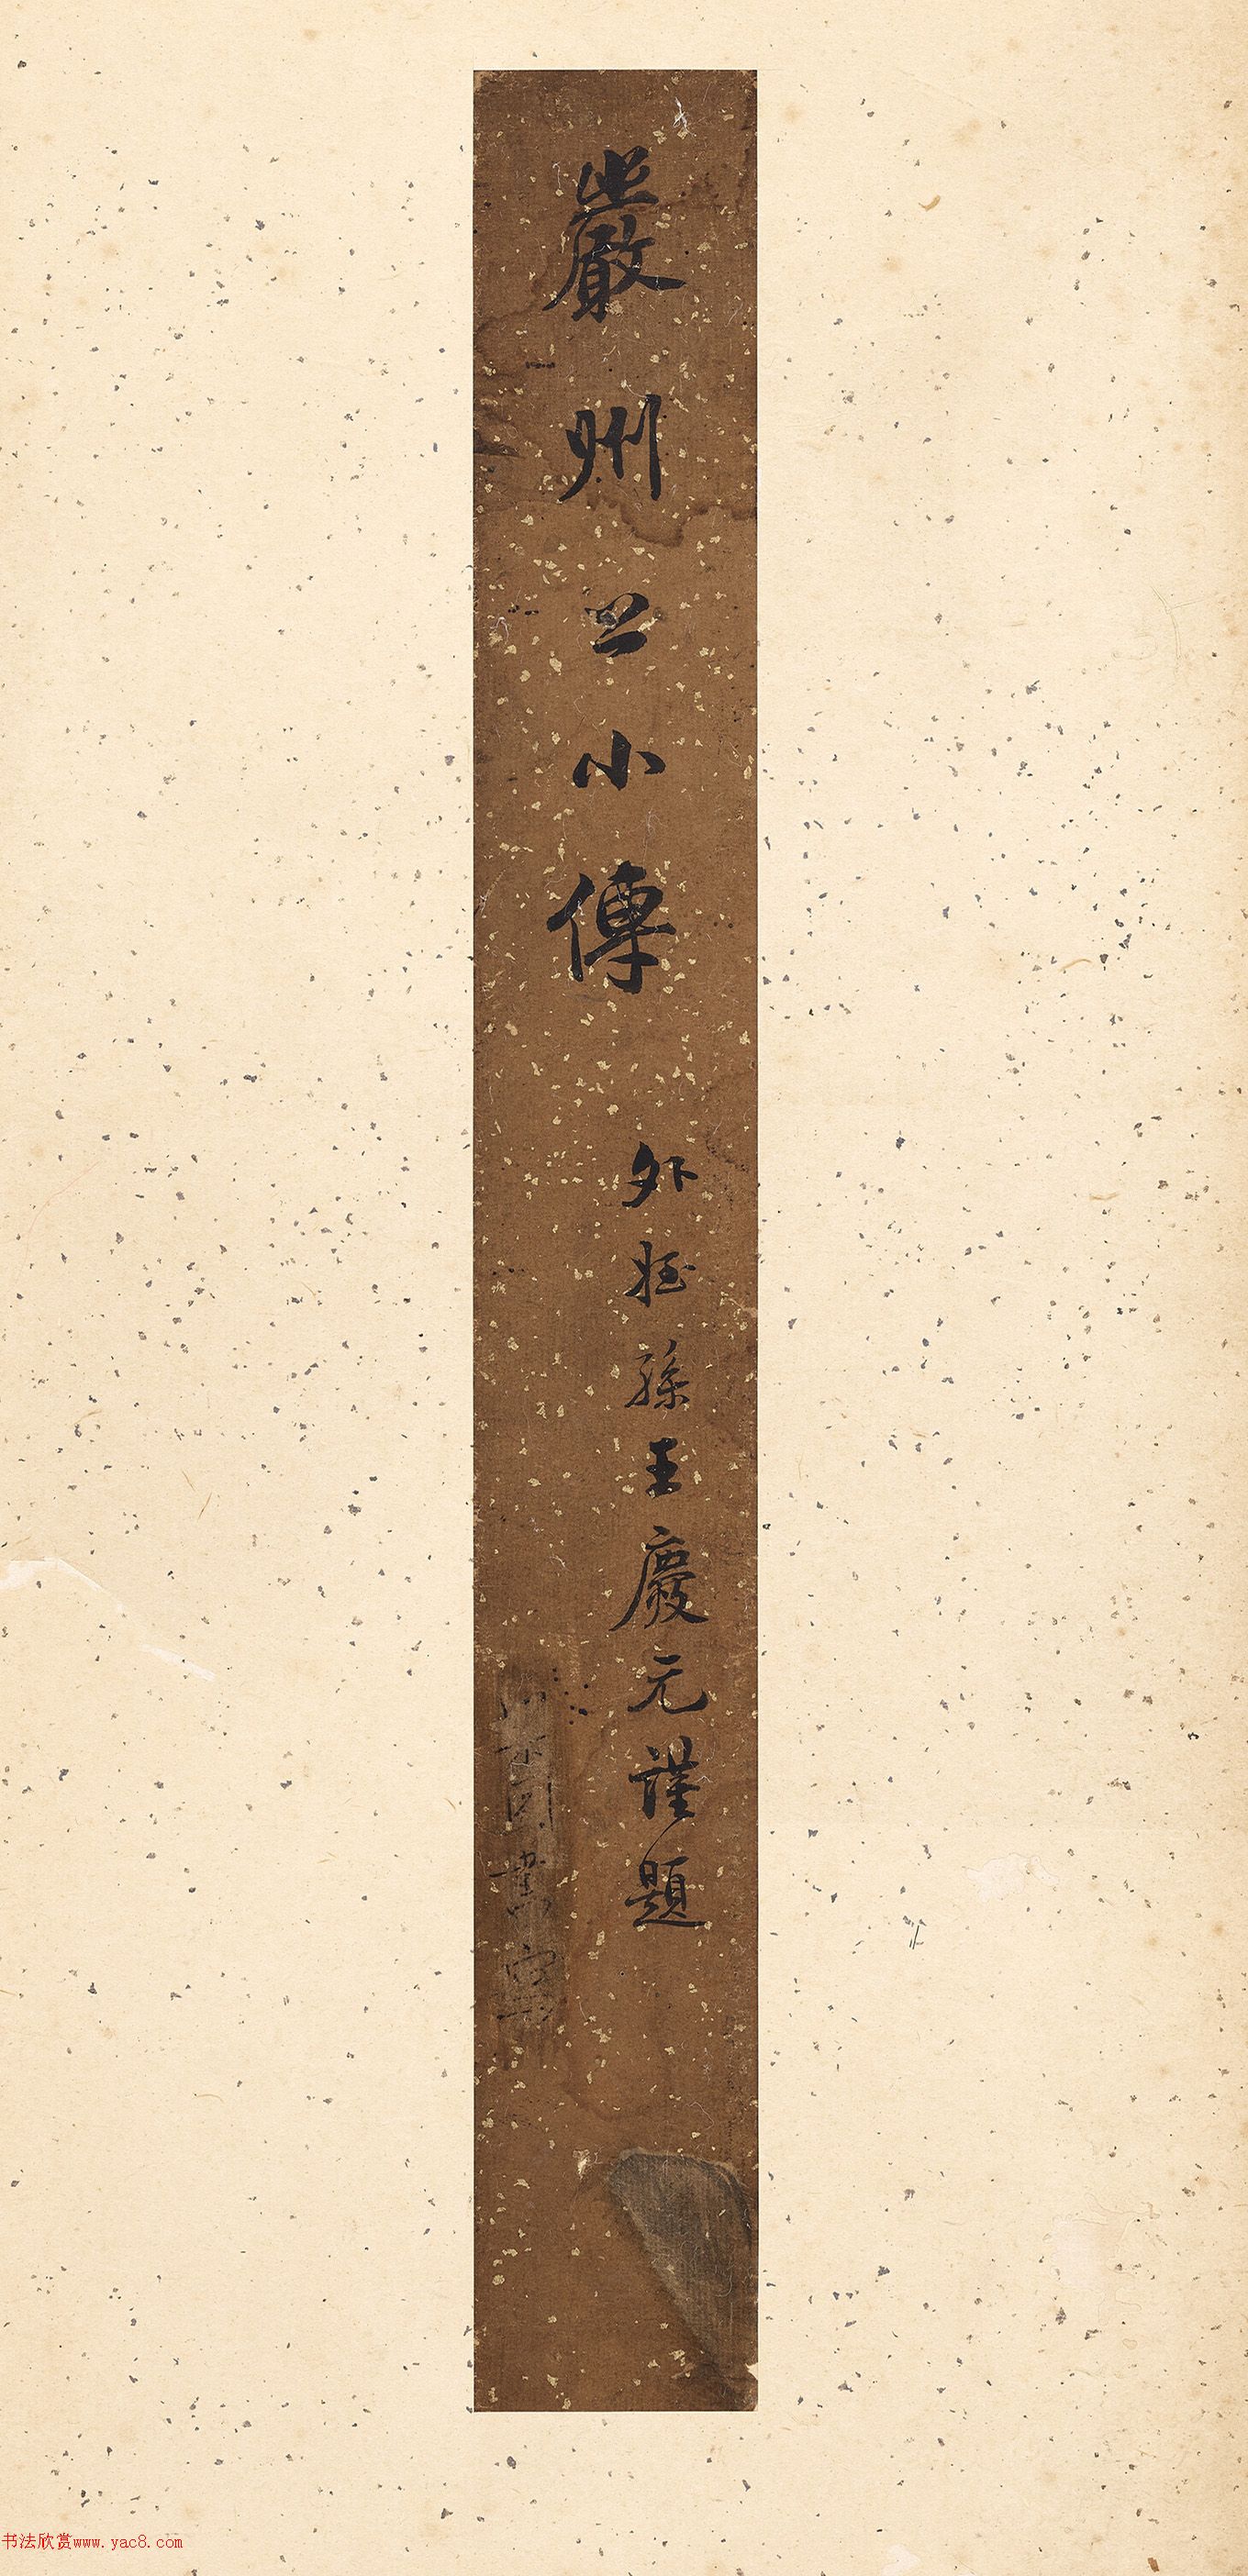 嚴州公小傳
外姪孫王慶元謹題
书法欣赏www.yac8.com